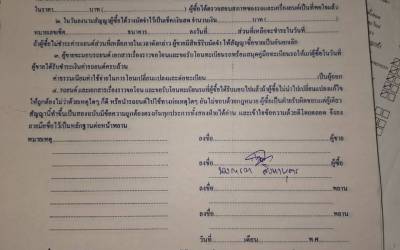 ในราคา บาท ( ) ผู้ซื้อได้ตรวจสอบสภาพของรถและเครื่องยนต์เป็นที่พอใจแล้ว
๒. ในวันลงนามสัญญาผู้ซื้อได้วางมัดจำไว้เป็นเช็คเงินสด จำนวนเงิน บาท ( )
หมายเลขเช็ค ธนาคาร ลงวันที่ ส่วนที่เหลือจะชำระในวันที่
ถ้าผู้ซื้อไม่ชำระค่ารถยนต์ส่วนที่เหลือภายในเวลาดังกล่าว ผู้ขายมีสิทธิริบมัดจำ ให้สัญญาซื้อขายเป็นอันยกเลิก
๓. ผู้ขายจะมอบรถยนต์ เอกสารเรื่องราวขอโอน และรับโอนทะเบียนรถหรือสมุดคู่มือทะเบียนรถให้แก่ผู้ซื้อในวันที่
ผู้ขายได้รับชำระค่ารถยนต์ครบถ้วน
ค่าธรรมเนียมค่าใช้จ่ายในการโอนเปลี่ยนแปลงและต่อทะเบียน เป็นผู้ออก
๔. รถยนต์และเอกสารเรื่องราวขอโอน และรับโอนทะเบียนรถที่ผู้ซื้อได้รับมอบไปแล้วถ้าผู้ซื้อไม่นำไปเปลี่ยนแปลงแก้ไข
ให้ถูกต้องไม่ว่าด้วยเหตุใดๆ ก็ดี หรือนำรถยนต์ไปใช้ทางก่อเหตุใดๆ อันไม่ชอบด้วยกฎหมาย ผู้ซื้อเป็นฝ่ายรับผิดชอบแต่ผู้เดียว
สัญญานี้ทำขึ้นเป็นสองฉบับมีข้อความถูกต้องตรงกันทุกประการทั้งสองฝ่ายได้อ่าน และเข้าใจข้อความด้วยดีโดยตลอด จึงลง
ลายมือชื่อไว้เป็นหลักฐานต่อหน้าพยาน
หมายเหตุ ลงชื่อ ผู้ขาย
ลงชื่อ ผู้ซื้อ
ลงชื่อ พยาน
ลงชื่อ พยาน
วันที่ เดือน พ.ศ.